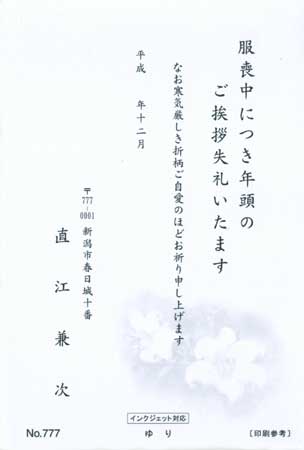 服喪中につき年頭の
ご挨拶失礼いたます
なお寒気厳しき折柄ご自愛のほどお祈り申し上げます
平成　年十二月
〒777-0001
新潟市春日城十番
直江兼次
インクジェット対応
No.777
ゆり
［印刷参考］